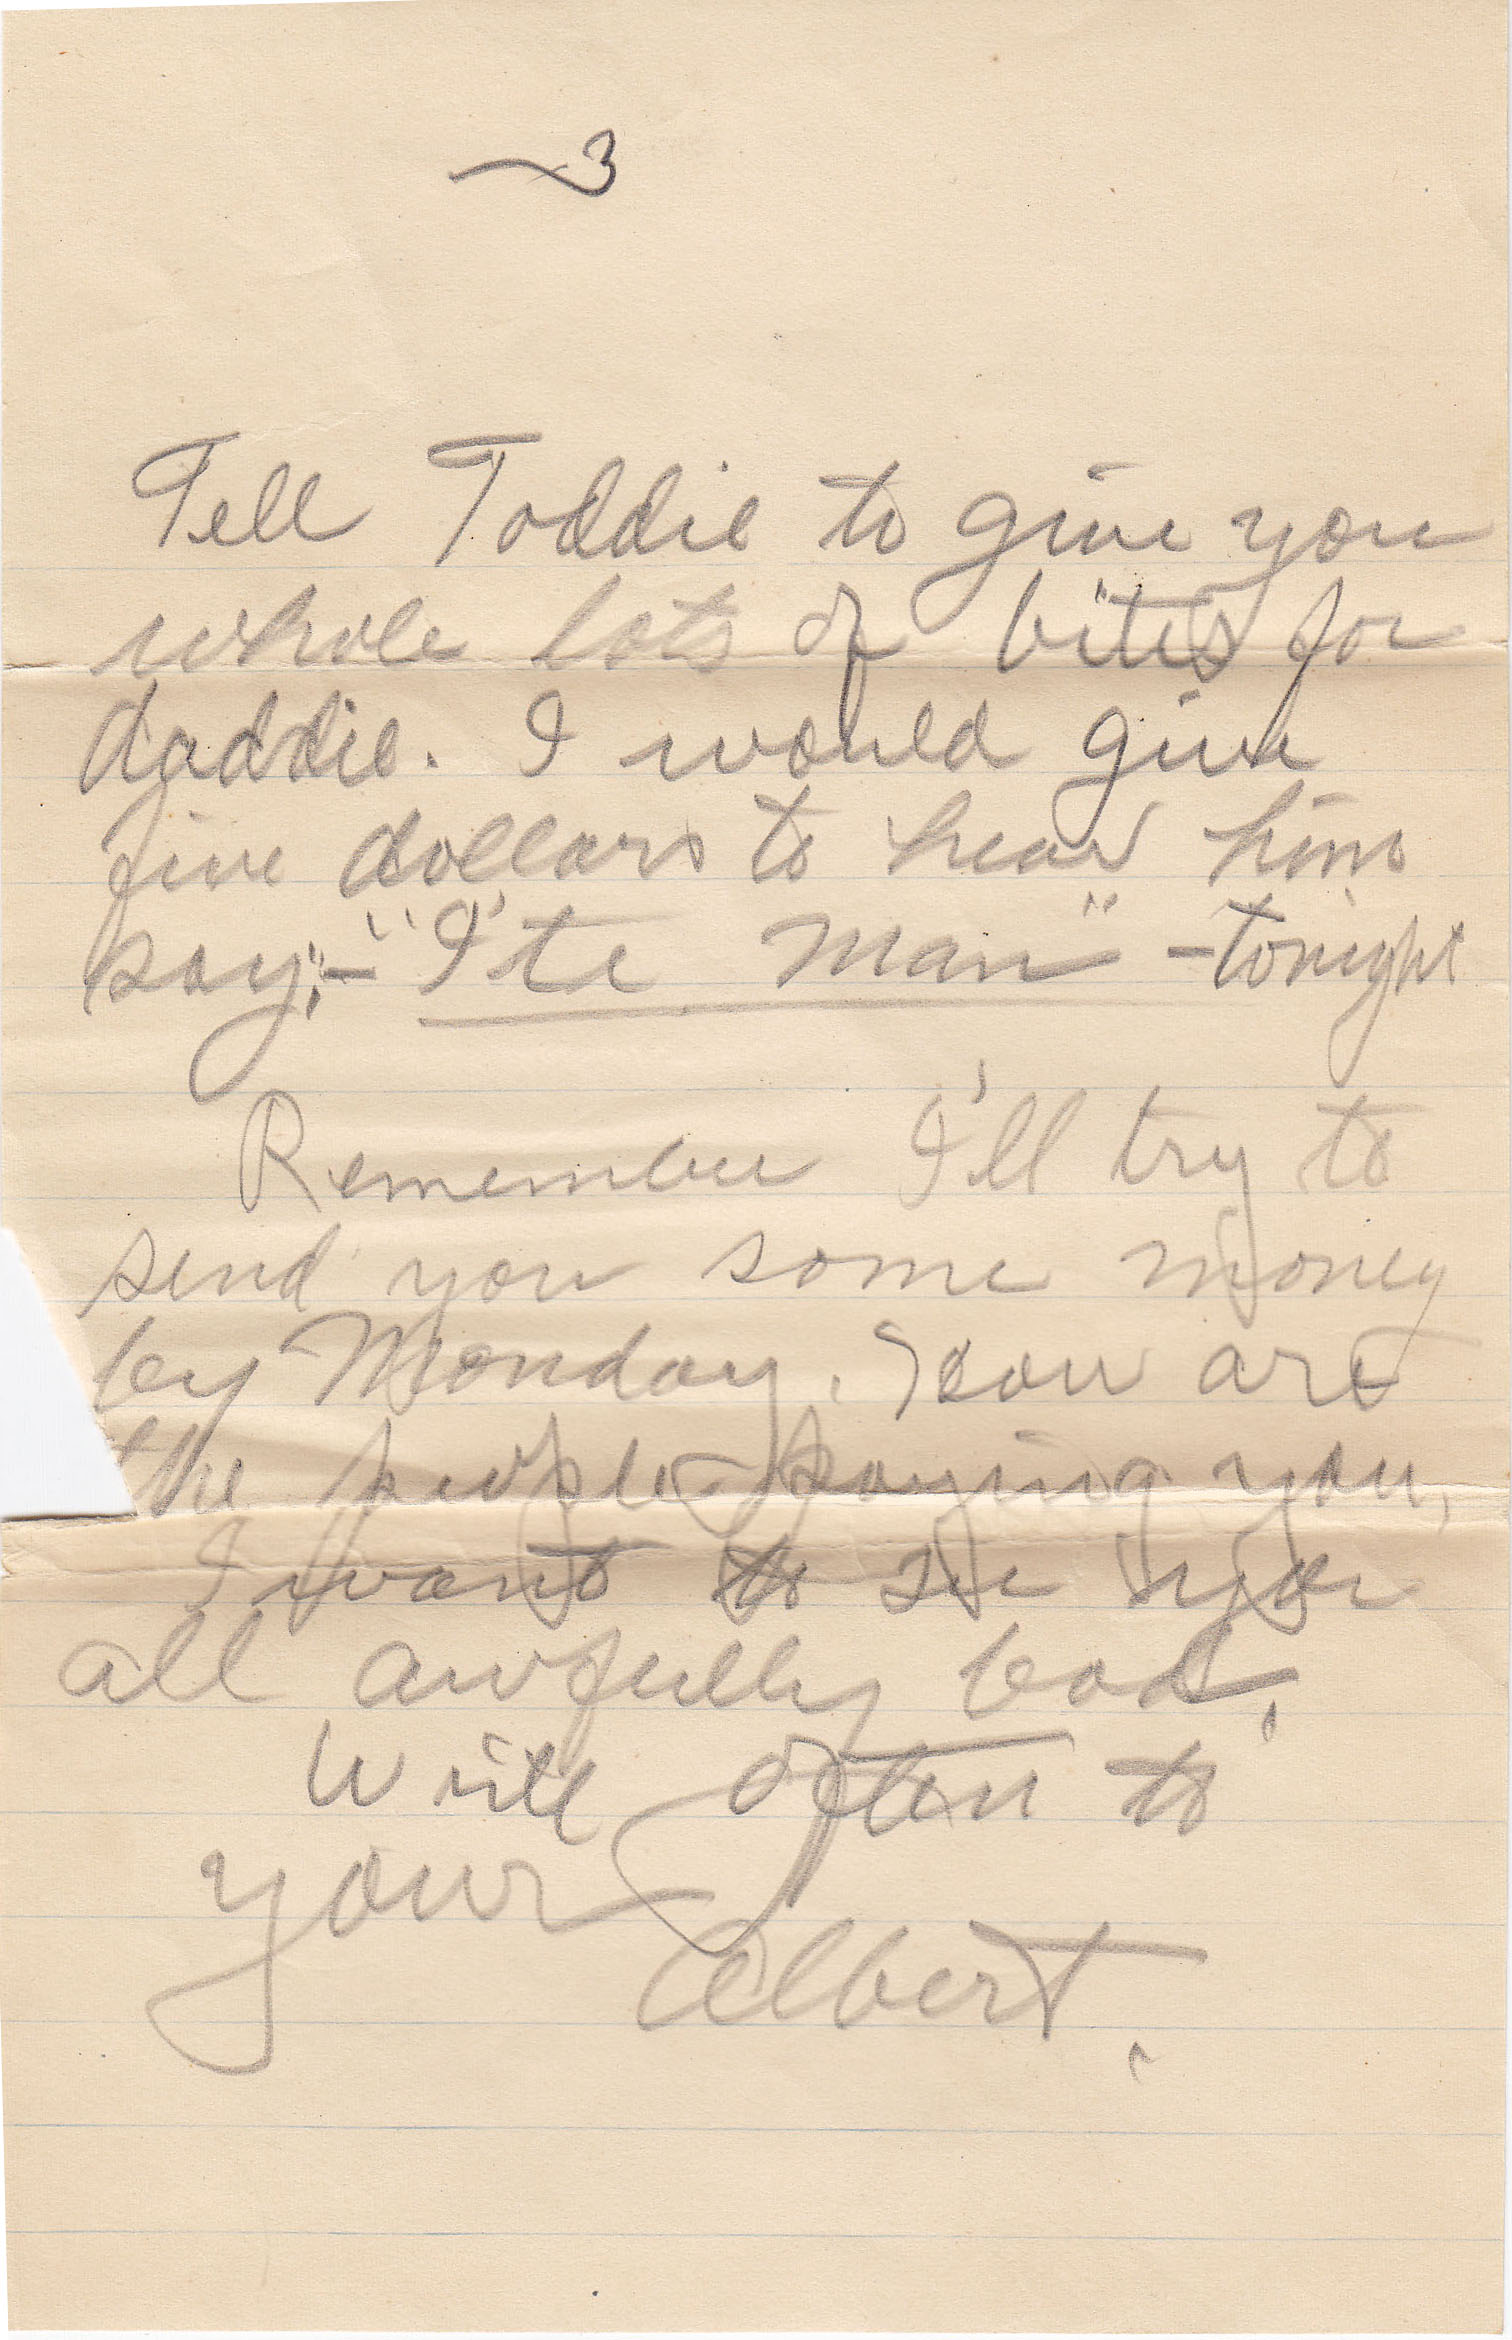 3
Tell Toddie to give you
whole lots of bites for
daddie. I would give
five dollars to hear him
say;- "I'te man" - tonight
Remember I'll try to
send you some money
by Monday. How are
the people paying you,
I want to see you
all awfully bad.
Write often to
your
Albert.